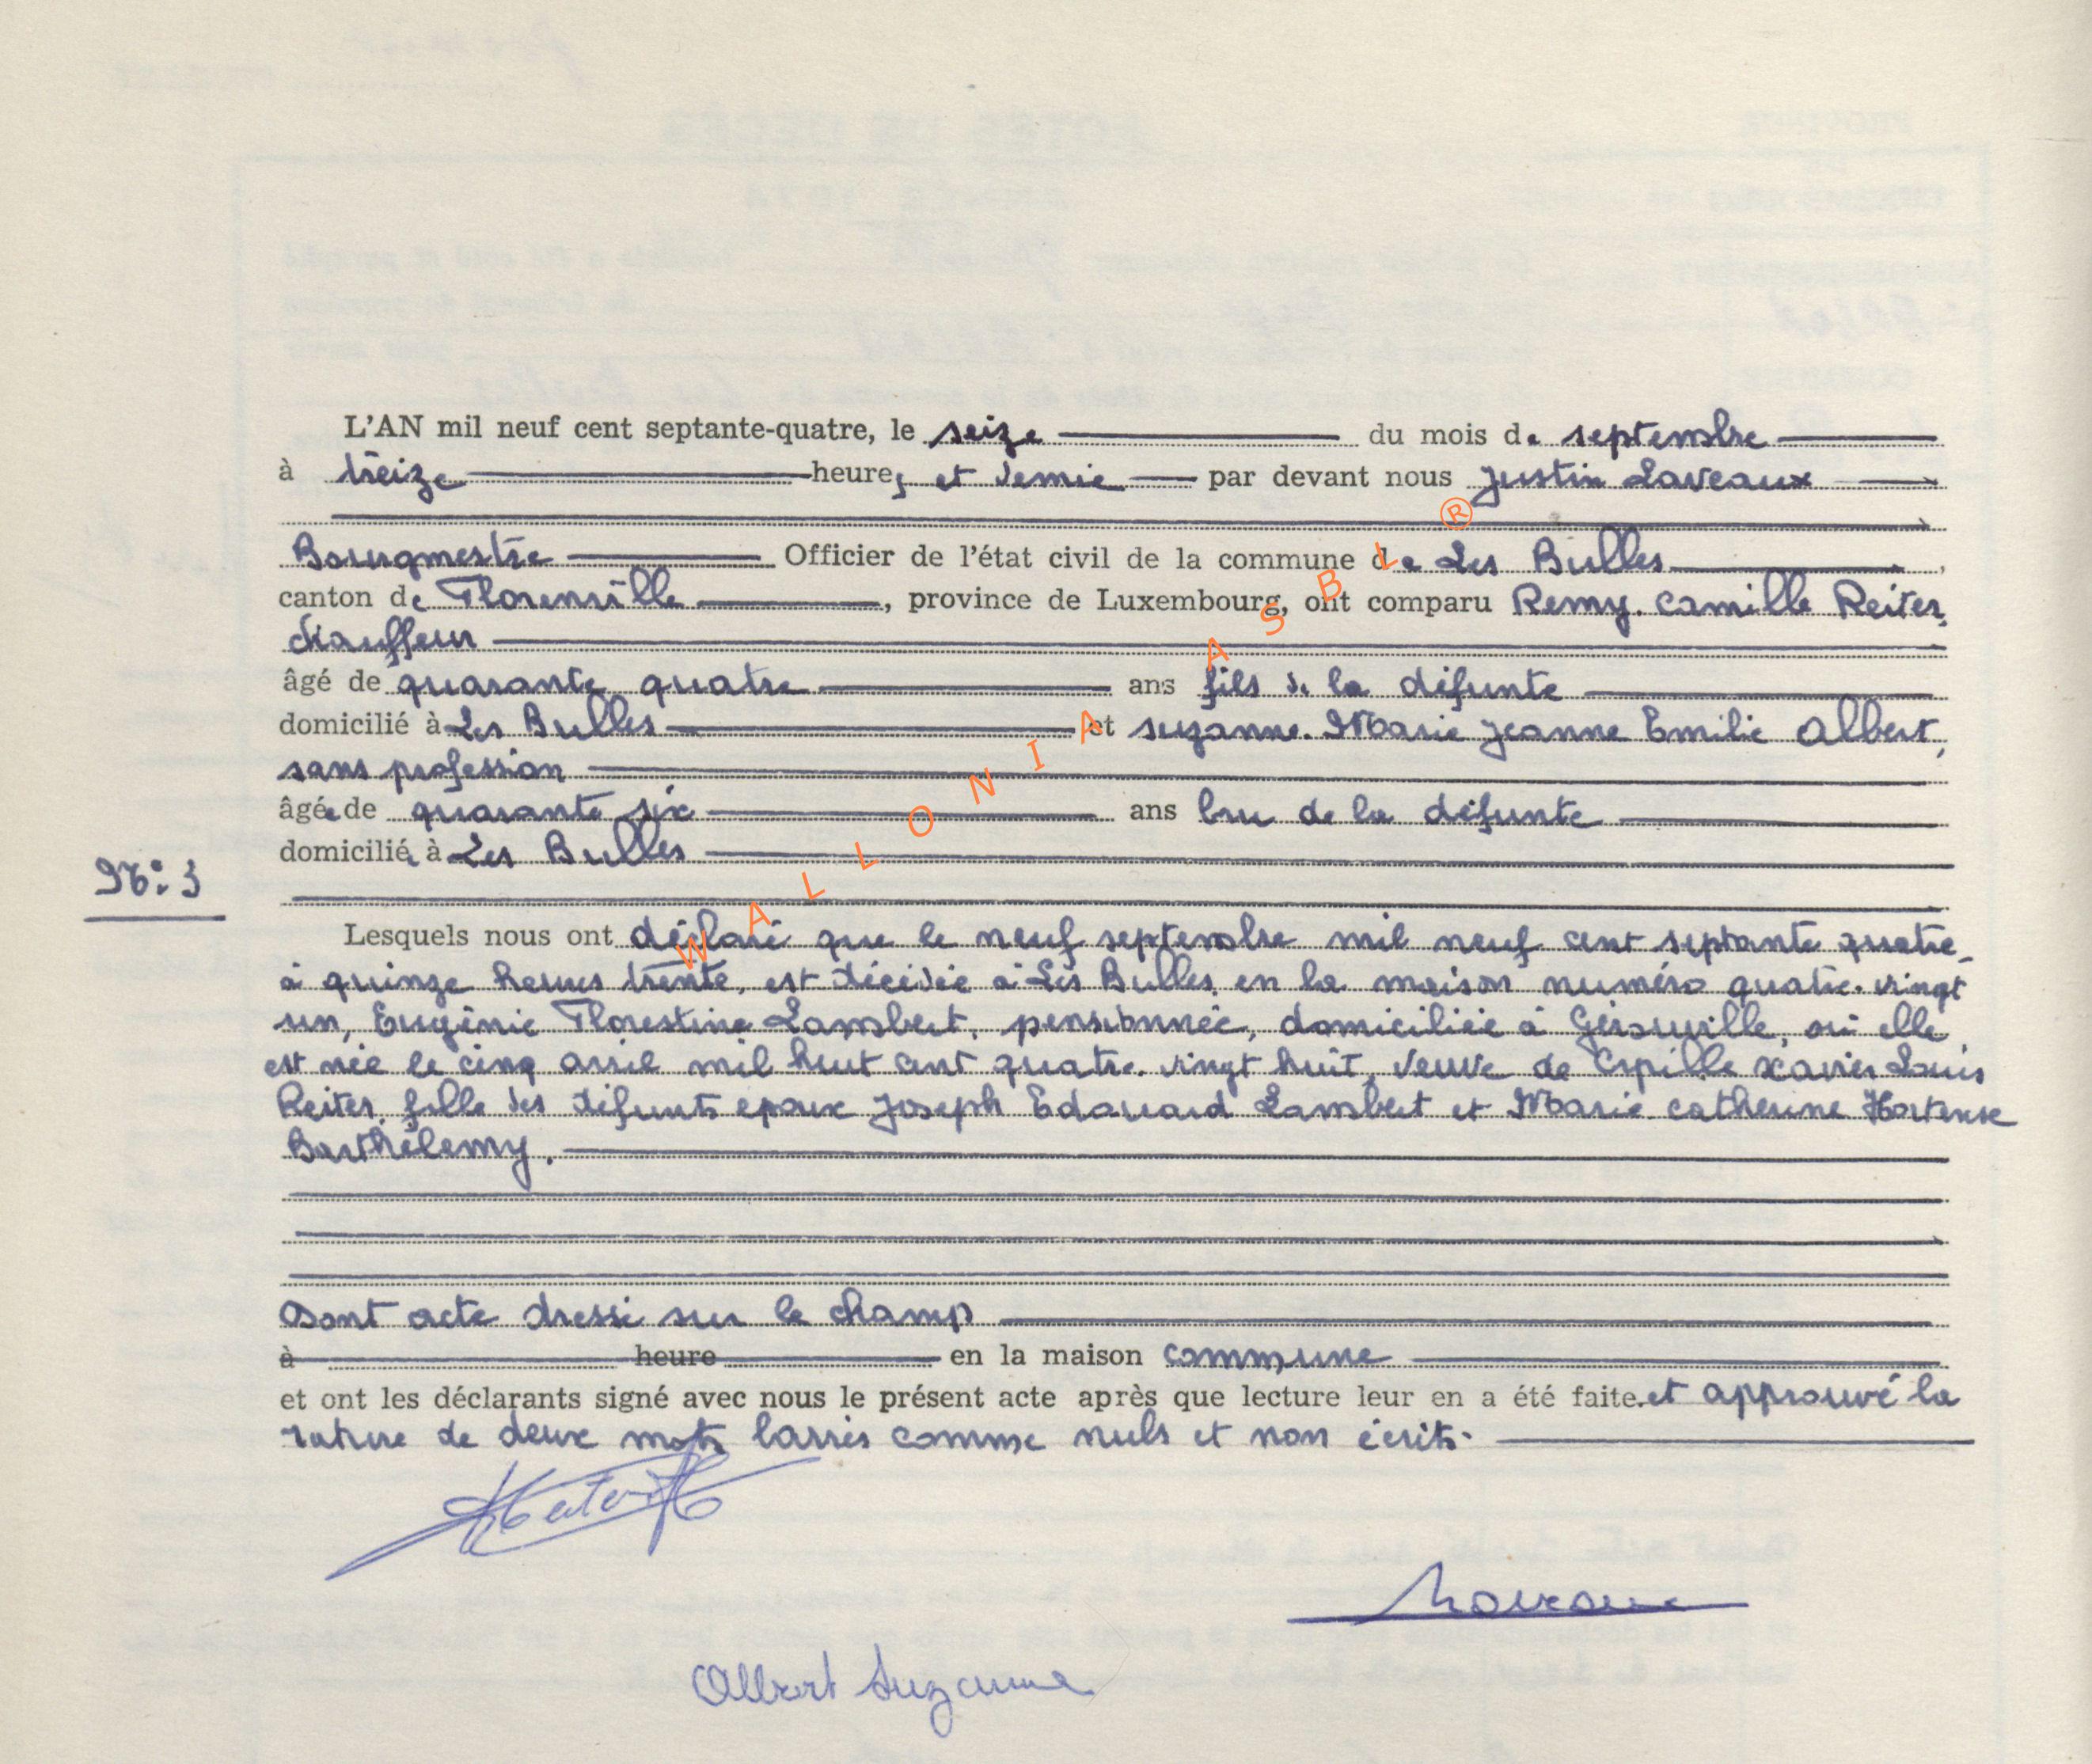 L'AN mil neuf cent septante-quatre, le seize du mois de septembre
à treize heures et demie par devant nous Justin Laveaux
Bourgmestre Officier de l'état civil de la commune de Les Bulles,
canton de Florenville, province de Luxembourg, ont comparu Remy. Camille Reiter,
chauffeur
âgé de quarante quatre ans fils de la défunte
domicilié à Les Bulles et Suzanne. Marie Jeanne Emilie Albert,
sans profession
âgée de quarante six ans bru de la défunte
domiciliée à Les Bulles
No: 3
Lesquels nous ont déclaré que le neuf septembre mil neuf cent septante quatre
à quinze heures trente, est décédée à Les Bulles, en la maison numéro quatre-vingt
un, Eugénie Florestine Lambert, pensionnée, domiciliée à Gérouville, où elle
est née le cinq avril mil huit cent quatre-vingt huit, veuve de Xavier Louis
Reiter, fille des défunts epoux Joseph Edouard Lambert et Marie Catherine Hortense
Barthélemy.
Dont acte dressé sur le champ
à heure en la maison commune
et ont les déclarants signé avec nous le présent acte après que lecture leur en a été faite. et approuvé la
rature de deux mots barrés comme nuls et non écrits.
Laveaux
Albert Suzanne
WALLONIA ASBL ®